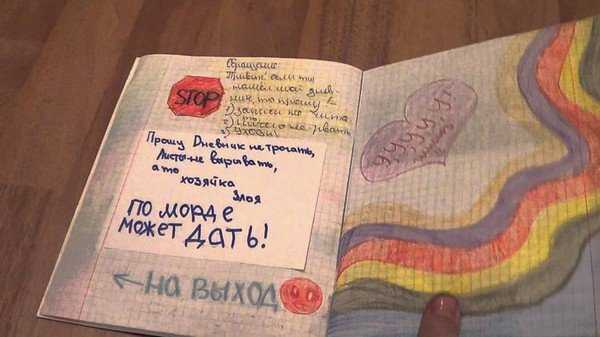 Обращение:
Привет если ты
нашёл мой днев-
ник, то прошу
1) записи не чита
2) ничего не рвать
3) Уходи!
STOP
Прошу Dневник не трогать,
Листы не вырывать,
а то
хозяйка
злая
по морде
может дать!
← НА ВЫХОД